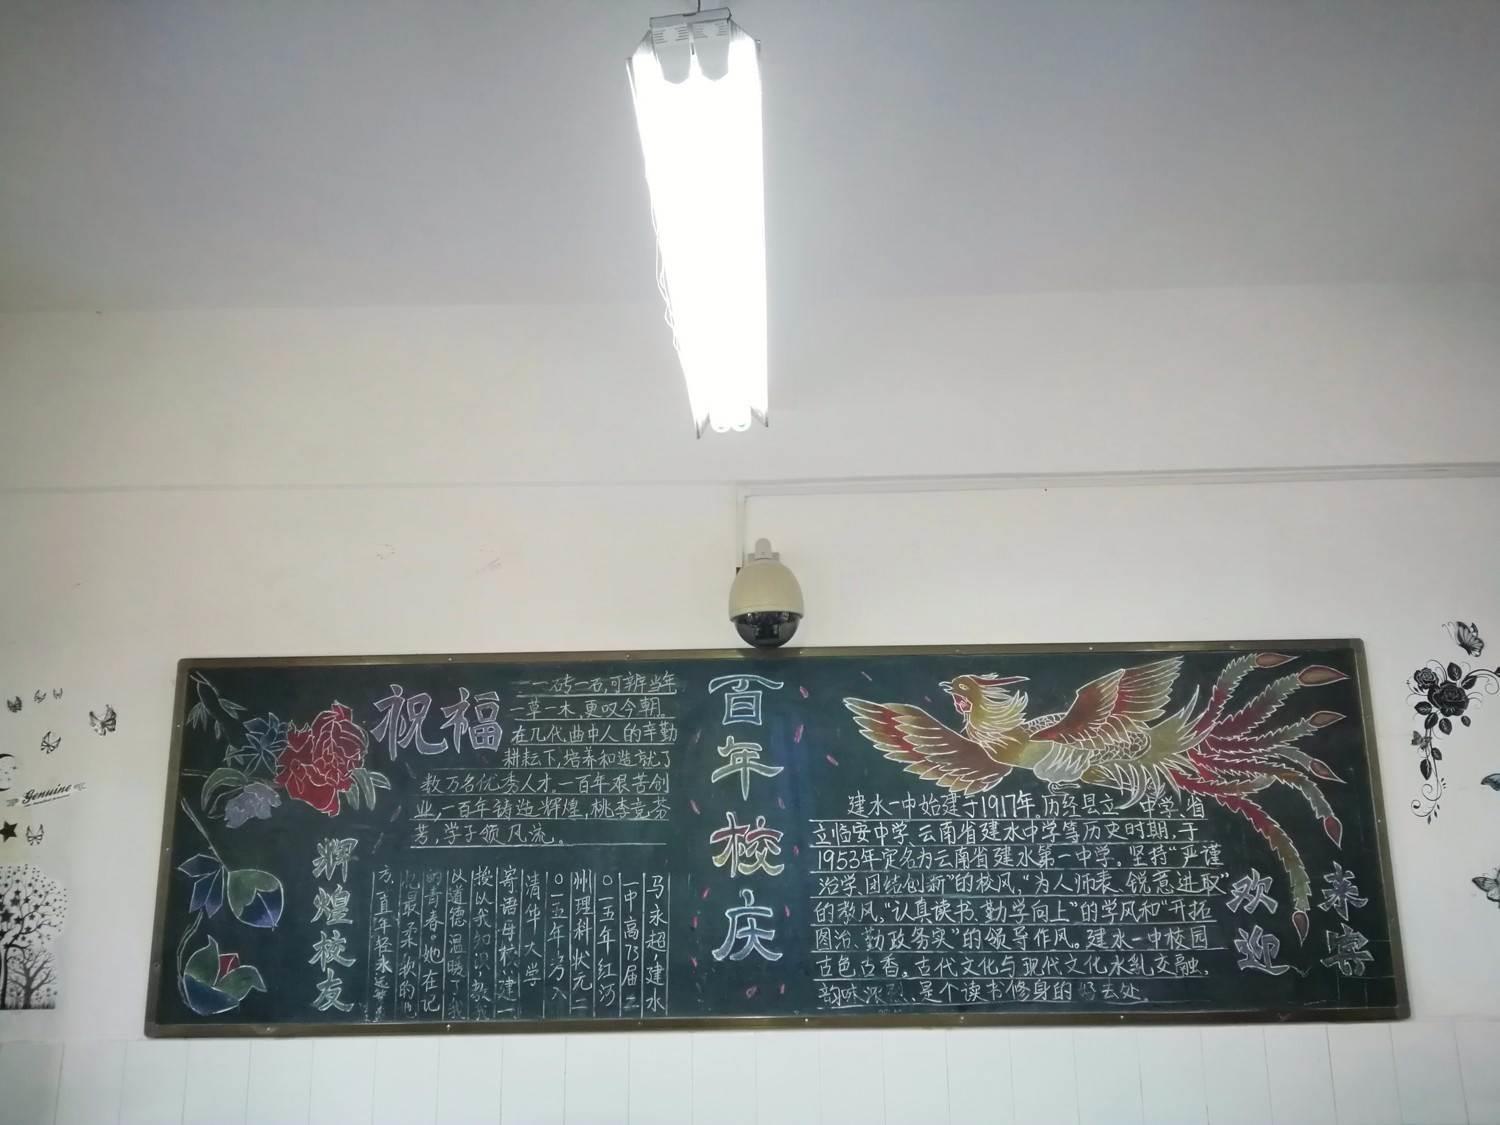 Genuine
祝福
一砖一石,可辨当年
一草一木,更叹今朝。
在几代曲中人的辛勤
耕耘下,培养和造就了
数万名优秀人才。一百年艰苦创
业,一百年铸造辉煌,桃李竞芬
芳,学子领风流。
辉煌校友
马永超,建水
一中高73届二
〇一五年红河
州理科状元二
〇一五年为入
清华大学
寄语母校:建一
授以我知识,教我
以道德温暖了我
的青春。她在记
忆最柔软的地
方,直年轻永远
百年校庆
建水一中始建于1917年。历经县立一中学、省
立临安中学、云南省建水中学等历史时期,于
1953年定名为云南省建水第一中学。坚持“严谨
治学,团结创新”的校风,“为人师表、锐意进取”
的教风,“认真读书、勤学向上”的学风和“开拓
图治、勤政务实”的领导作风。建水一中校园
古色古香,古代文化与现代文化水乳交融,
韵味浓烈、是个读书修身的好去处。
欢迎
来宾